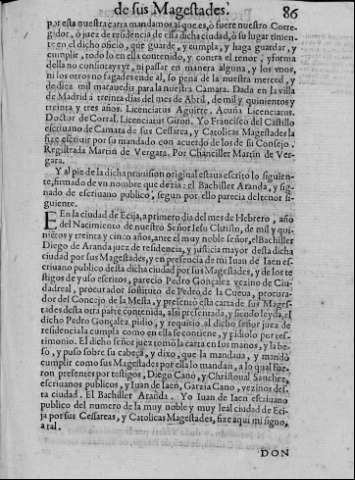 de sus Magestades. 86
por esta nuestra carta mandamos al que es, ò fuere nuestro Corre-
gidor, ò juez de residencia de essa dicha ciudad, ò su lugar tinien-
te en el dicho oficio, que guarde, y cumpla, y haga guardar, y
cumplir, todo lo en ella contenido, y contra el tenor, y forma
della no consintays yr, ni passar en manera alguna, y los vnos,
ni los otros no fagades ende al, so pena de la nuestra merced, y
de diez mil marauedis para la nuestra Camara. Dada en la villa
de Madrid à treinta dias del mes de Abril, de mil y quinientos y
treinta y tres años. Licenciatus Aguirre, Acuña Licenciatus.
Doctor de Corral. Licenciatus Giron. Yo Francisco del Castillo
escriuano de Camara de sus Cessarea, y Catolicas Magestades la
fize escriuir por su mandado con acuerdo de los de su Consejo.
Registrada Martin de Vergara. Por Chanciller Martin de Ver-
gara.
Y al pie de la dicha prouision original estaua escrito lo siguien-
te, firmado de vn nombre que dezia: el Bachiller Aranda, y sig-
nado de escriuano publico, segun por ello parecia del tenor si-
guiente.
En la ciudad de Ecija, a primero dia del mes de Hebrero, año
del Nacimiento de nuestro Señor Iesu Christo, de mil y qui-
nientos y treinta y cinco años, ante el muy noble señor, el Bachiller
Diego de Aranda juez de residencia, y justicia mayor desta dicha
ciudad por sus Magestades, y en presencia de mi Iuan de Iaen es-
criuano publico desta dicha ciudad por sus Magestades, y de los te
stigos de yuso escritos, parecio Pedro Gonçalez vezino de Ciu-
dadreal, procurador sostituto de Pedro de la Cueua, procura-
dor del Concejo de la Mesta, y presentò esta carta de sus Mages-
tades desta otra parte contenida, assi presentada, y siendo leyda, el
dicho Pedro Gonçalez pidio, y requirio al dicho señor juez de
residencia la cumpla como en ella se contiene, y pidiolo por tes-
timonio. El dicho señor juez tomò la carta en los manos, y la be-
so, y puso sobre su cabeça, y dixo, que la mandaua, y mandò
cumplir como sus Magestades por ella lo mandan, a lo qual fue-
ron presentes por testigos, Diego Cano, y Christoual Sanchez,
escriuanos publicos, y Iuan de Iaen, Garcia Cano, vezinos des-
ta ciudad. El Bachiller Aranda. Yo Iuan de Iaen escriuano
publico del numero de la muy noble y muy leal ciudad de Eci-
ja por sus Cessareas, y Catolicas Magestades, fize aqui mi signo,
a tal.
DON